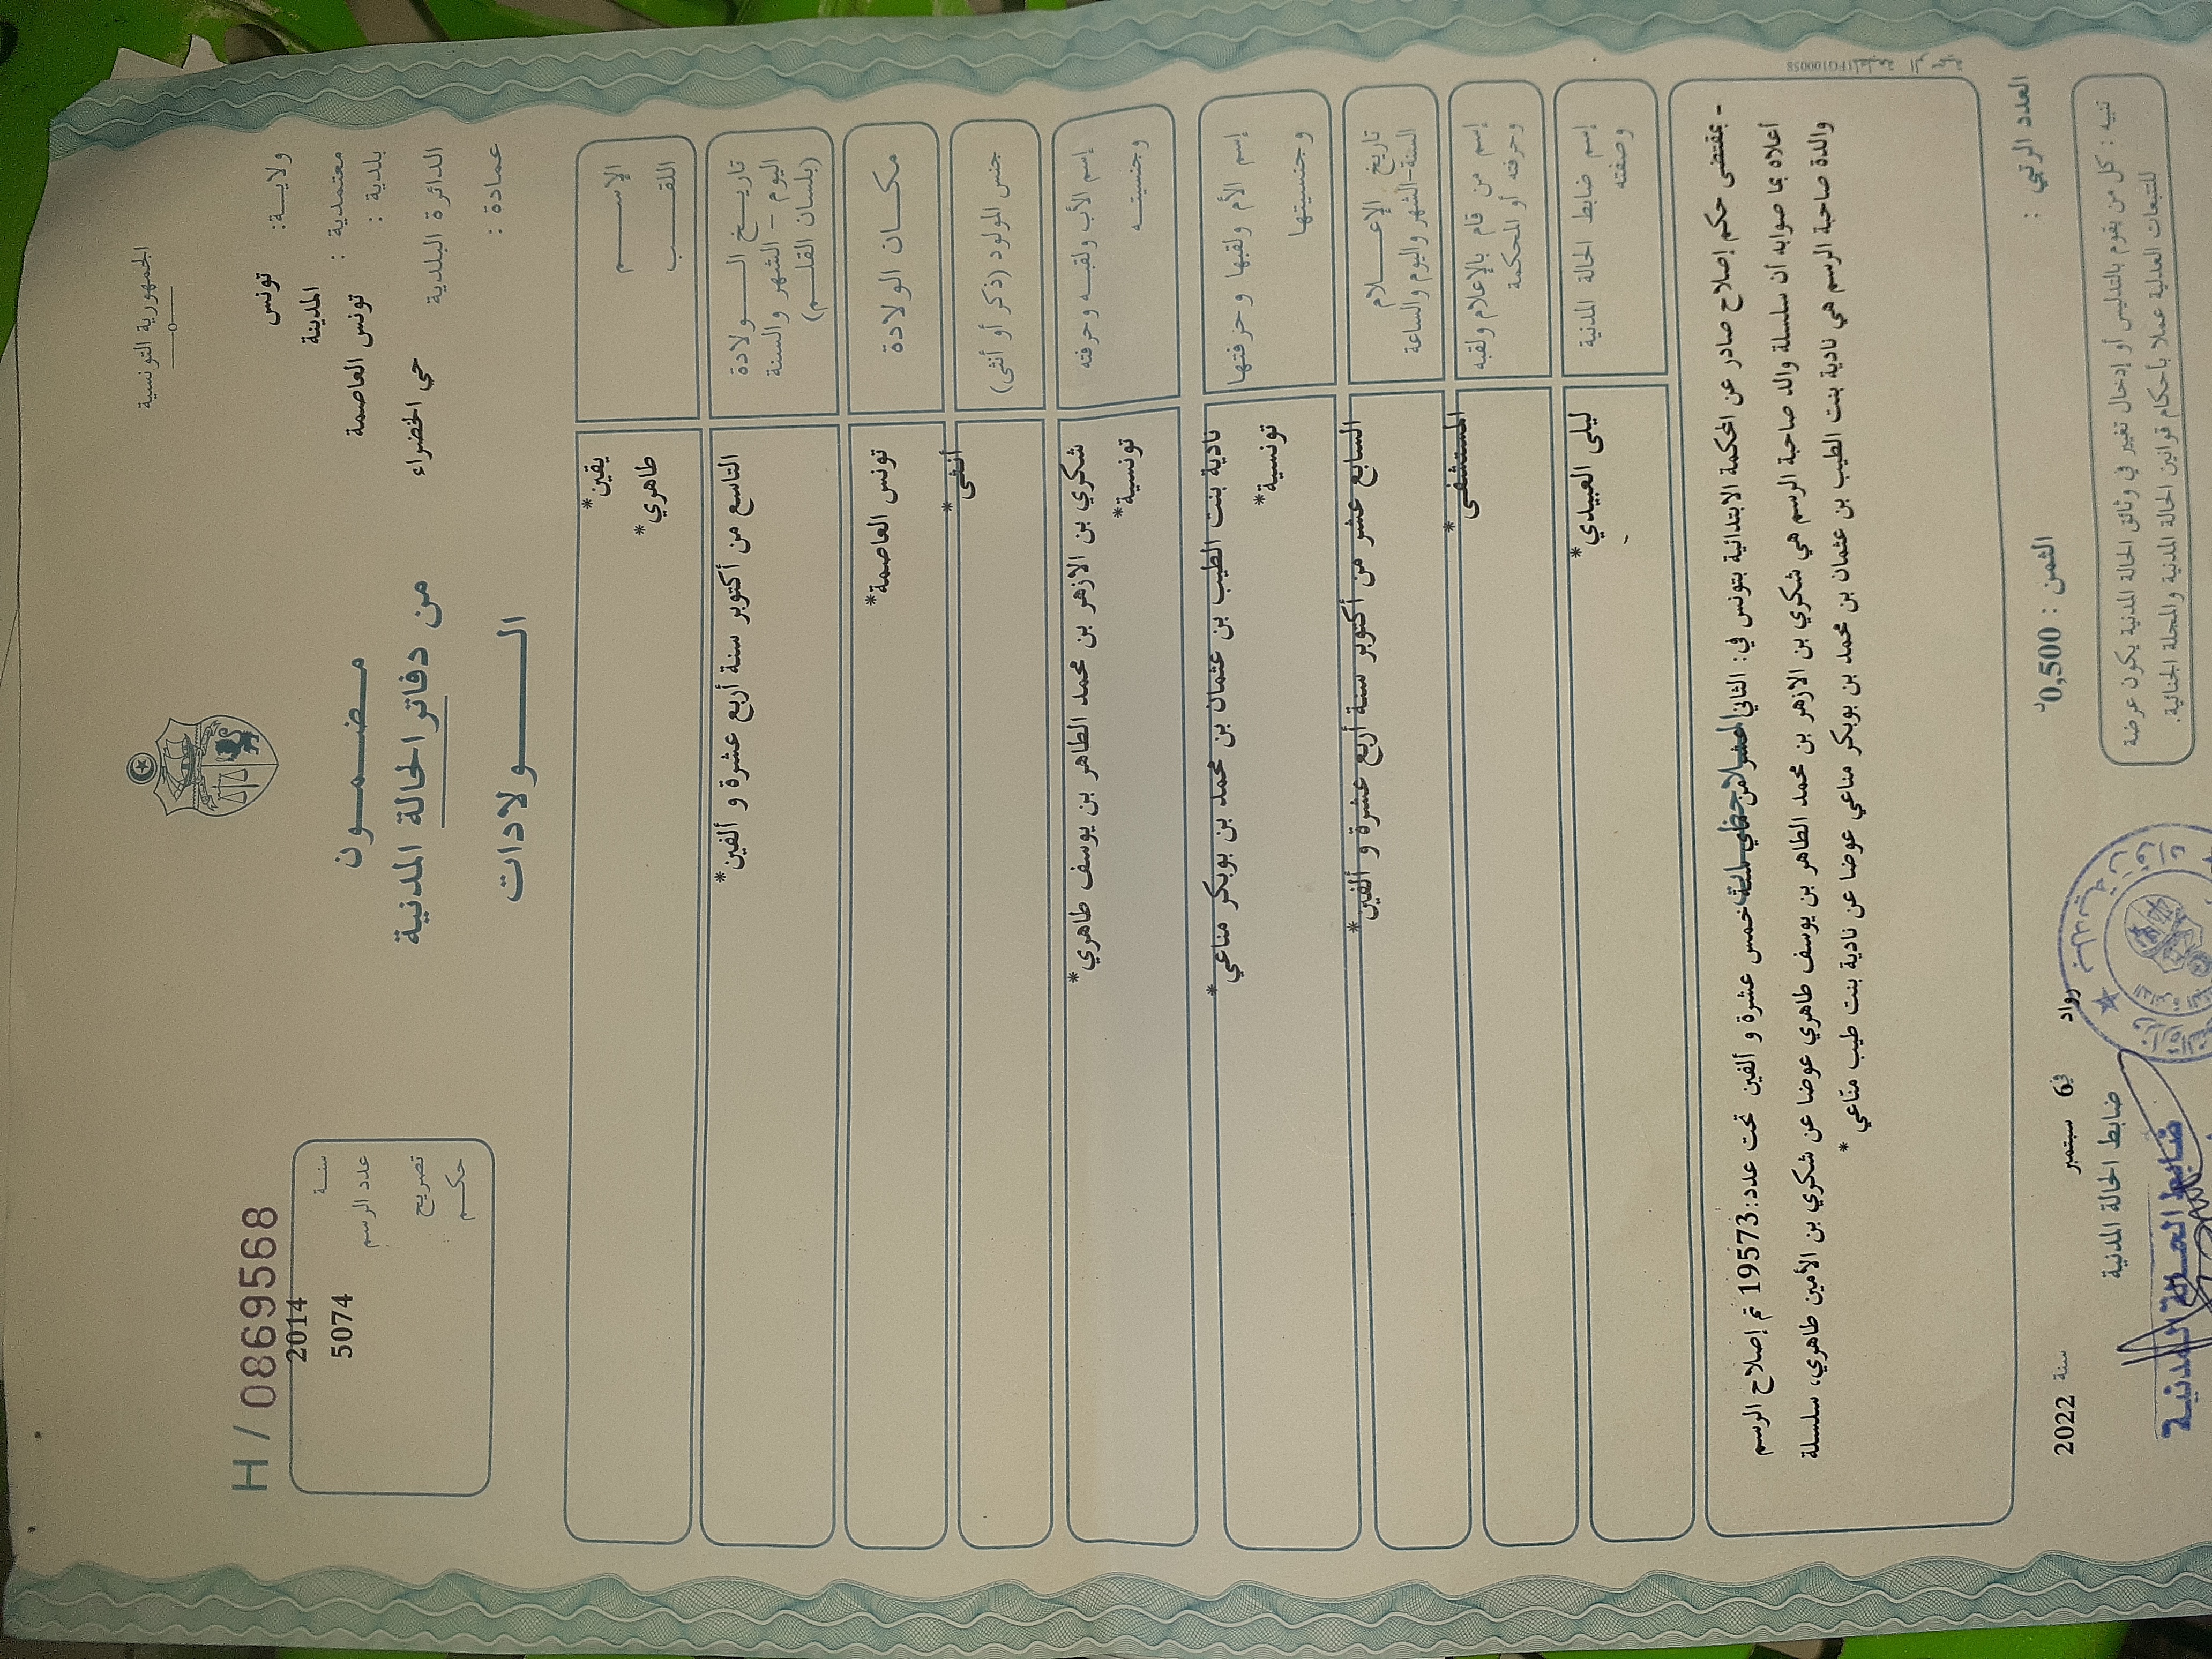 الجمهورية التونسية
H / 0869568
ولاية: تونس
معتمدية : المدينة
بلدية : تونس العاصمة
الدائرة البلدية حي الخضراء
عمادة :
سنة 2014
عدد الرسم 5074
تصريح
حكم
مضمون
من دفاتر الحالة المدنية
الولادات
الإسم
اللقب
يقين*
طاهري*
تاريخ الولادة
اليوم - الشهر والسنة
(بلسان القلم)
التاسع من أكتوبر سنة أربع عشرة و ألفين*
مكان الولادة
تونس العاصمة*
جنس المولود (ذكر أو أنثى)
أنثى*
إسم الأب ولقبه وحرفته
وجنسيته
شكري بن الازهر بن محمد الطاهر بن يوسف طاهري*
تونسية*
إسم الأم ولقبها وحرفتها
وجنسيتها
نادية بنت الطيب بن عثمان بن محمد بن بوبكر مناعي*
تونسية*
تاريخ الإعلام
السنة-الشهر واليوم والساعة
السابع عشر من أكتوبر سنة أربع عشرة و ألفين*
إسم من قام بالإعلام ولقبه
وحرفته أو المحكمة
المستشفى*
إسم ضابط الحالة المدنية
وصفته
ليلى العبيدي*
- بمقتضى حكم إصلاح صادر عن المحكمة الابتدائية بتونس في: الثاني خمس عشرة و ألفين تحت عدد:19573 تم إصلاح الرسم
أعلاه بما صوابه أن سلسلة والد صاحبة الرسم هي شكري بن الازهر بن محمد الطاهر بن يوسف طاهري عوضا عن شكري بن الأمين طاهري، سلسلة
والدة صاحبة الرسم هي نادية بنت الطيب بن عثمان بن محمد بن بوبكر مناعي عوضا عن نادية بنت طيب منّاعي *
العدد الرتبي :
الثمن : 0,500د
رواد في 6 سبتمبر سنة 2022
ضابط الحالة المدنية
ضابط الحالة المدنية
تنبيه : كل من يقوم بالتدليس أو إدخال تغيير في وثائق الحالة المدنية يكون عرضة
للتتبعات العدلية عملا بأحكام قوانين الحالة المدنية والمجلة الجنائية.